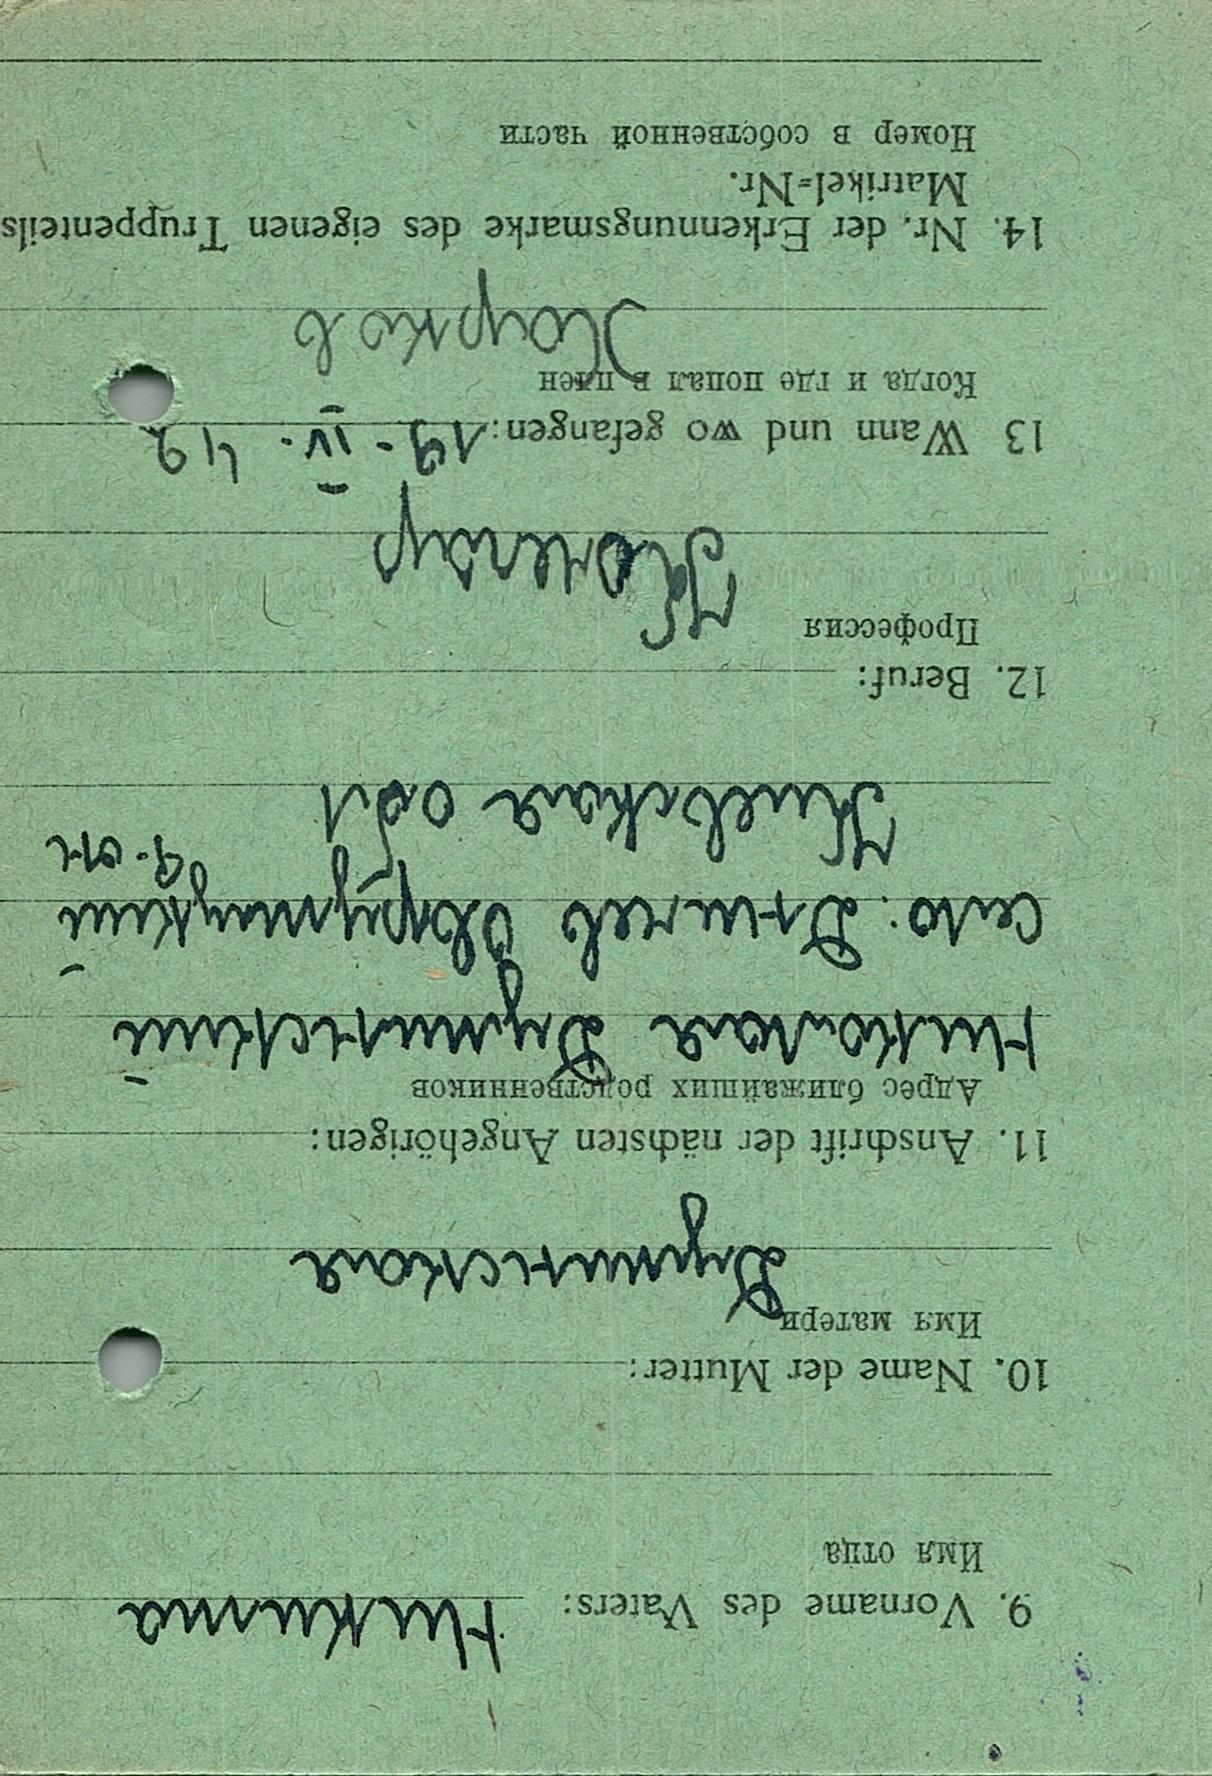 9. Vorname des Vaters: Никита
Имя отца
10. Name der Mutter:
Имя матери
Думинская
11. Anschrift der nächsten Angehörigen:
Адрес ближайших родственников
Николая Думинский
село:
р.он
Киевская обл
12. Beruf:
Профессия
13 Wann und wo gefangen: 19-IV.42
Когда и где попал в плен
Харков
14. Nr. der Erkennungsmarke des eigenen Truppenteils
Matrikel=Nr.
Номер в собственной части